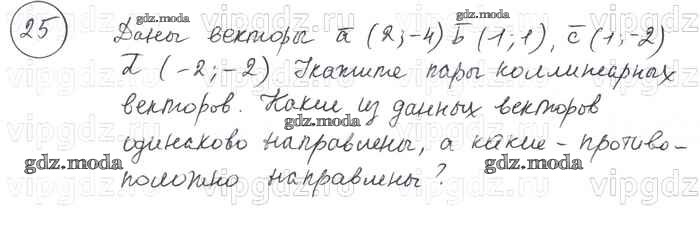 25
Даны векторы a̅ (2;-4) b̅ (1;1), c̅ (1;-2)
d̅ (-2;-2) Укажите пары коллинеарных
векторов. Какие из данных векторов
одинаково направлены, а какие - противо-
положно направлены?
gdz.moda
gdz.moda
gdz.moda
gdz.moda
gdz.moda
gdz.moda